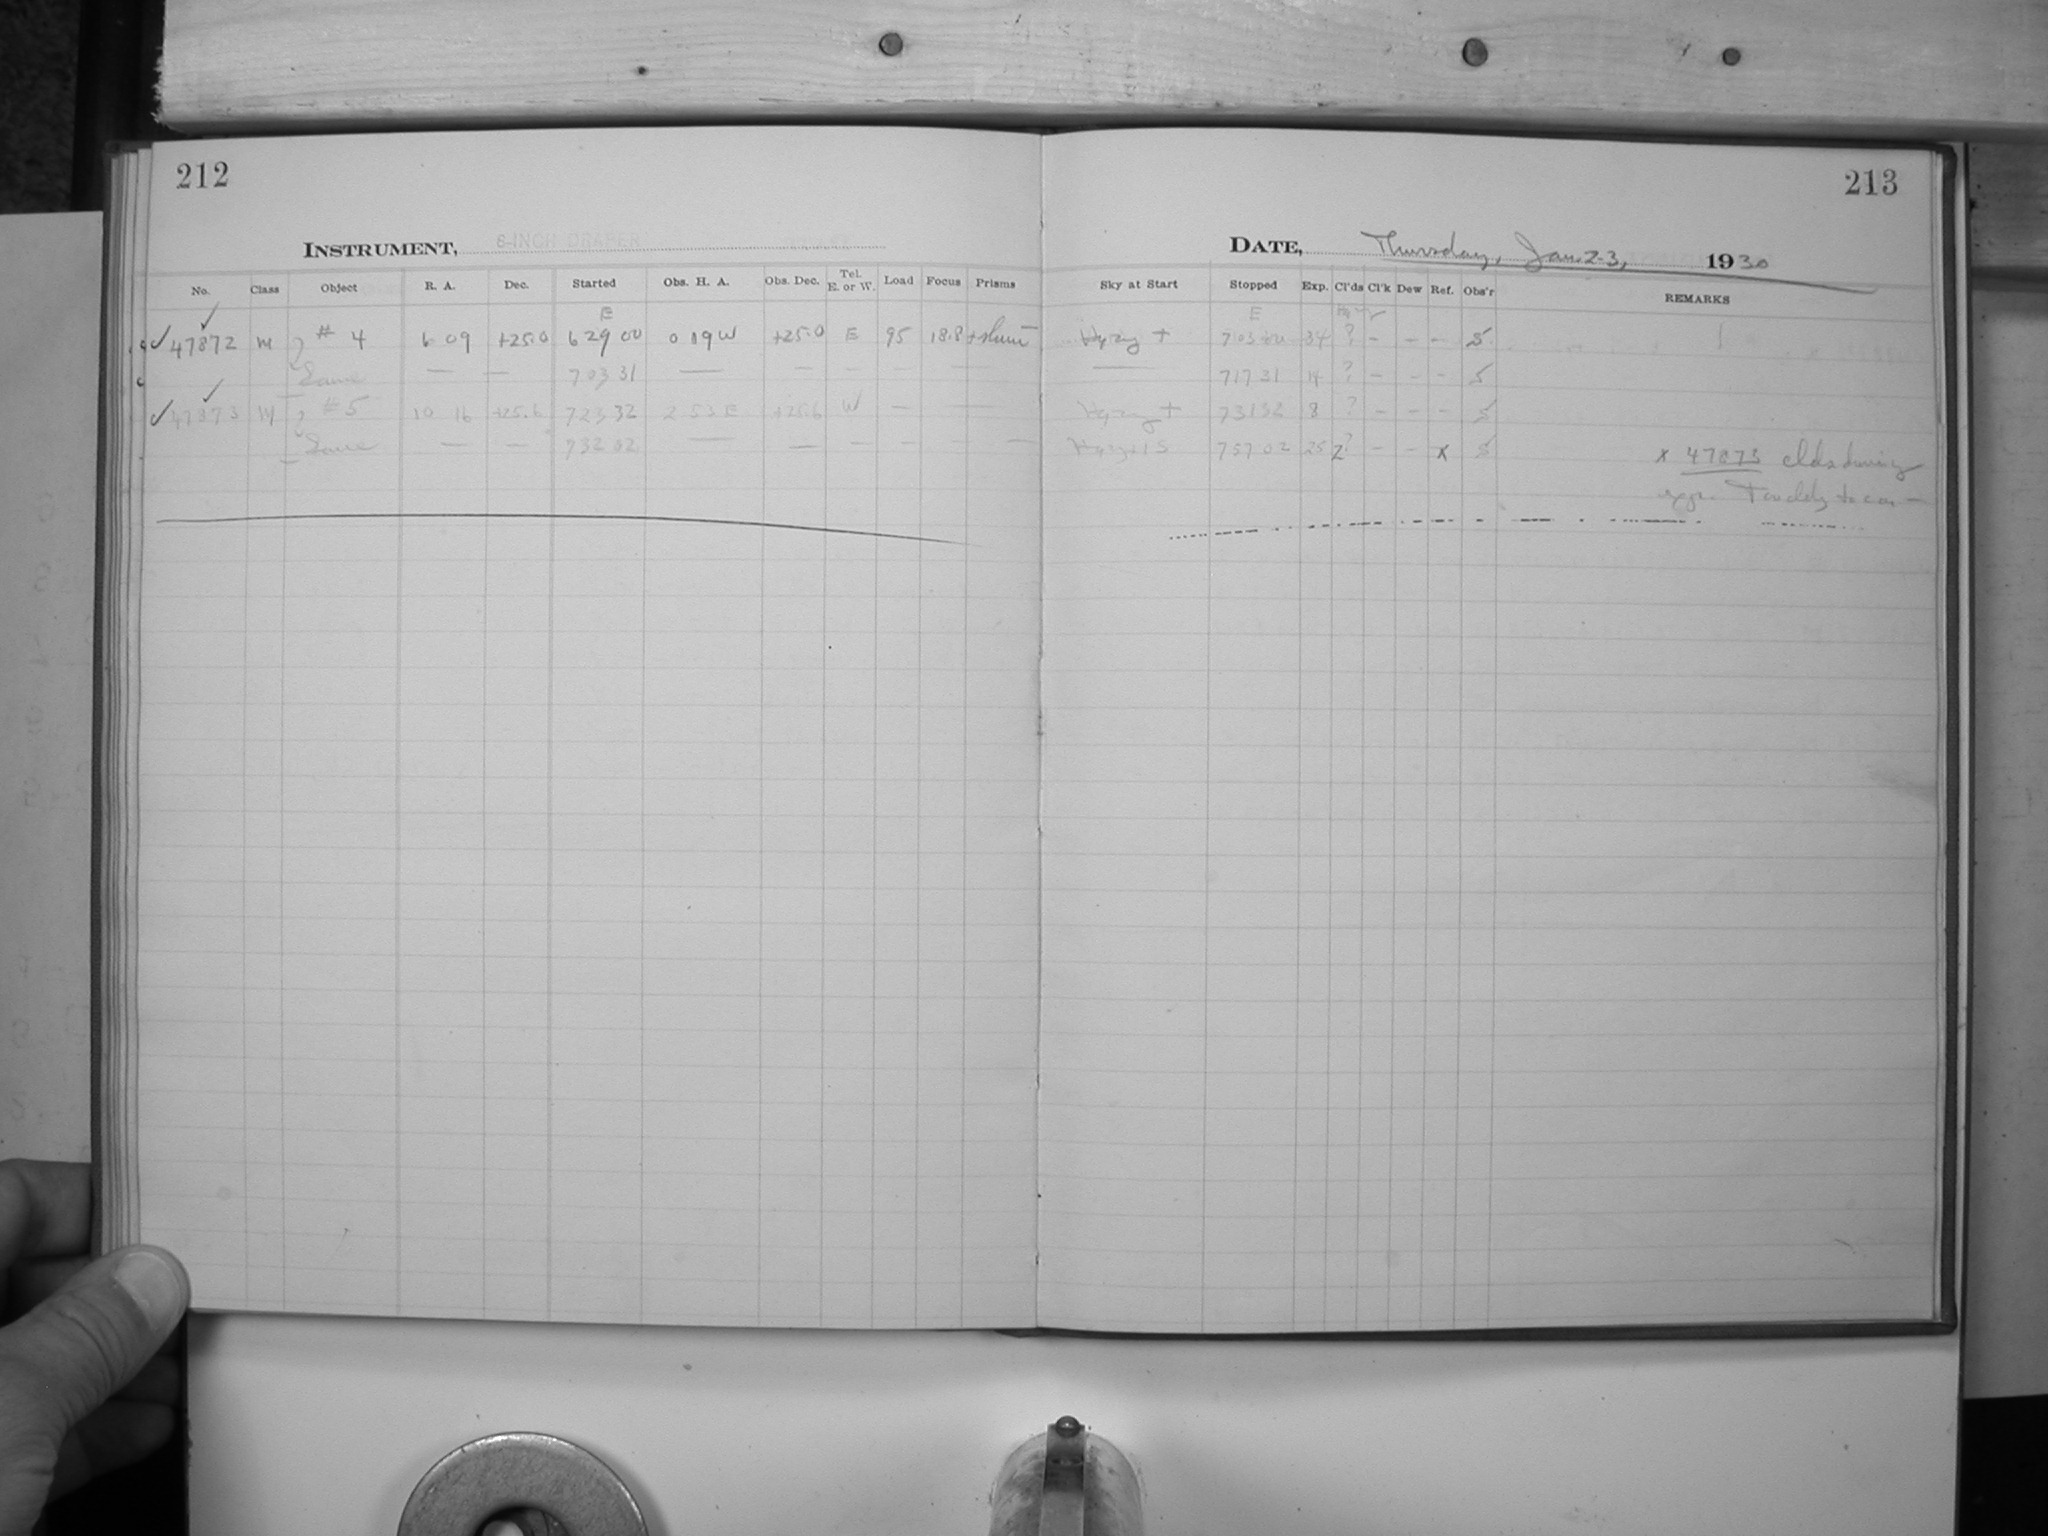 212
INSTRUMENT, 8-INCH DRAPER
No. Class Object R. A. Dec. Started Obs. H. A. Obs. Dec. Tel. E. or W. Load Focus Prisms
E
✓ 47872 M # 4 6 09 +25.0 6 29 00 0 19 W +25.0 E 95 18.8
Same — — 7 03 31 — — — — — —
✓ 47873 M # 5 10 16 +25.6 7 23 32 2 53 E +25.6 W — —
Same — — 7 32 02 — — — — — —
213
DATE, Thursday, Jan. 23, 1930
Sky at Start Stopped Exp. Cl'ds Cl'k Dew Ref. Obs'r REMARKS
E
Hazy + 7 03 00 34 ? – – – S
— 7 17 31 14 ? – – – S
Hazy + 7 31 32 8 ? – – – S
7 57 02 25 2? – – x S
x 47873 clds during
exp. Too cldy to con —